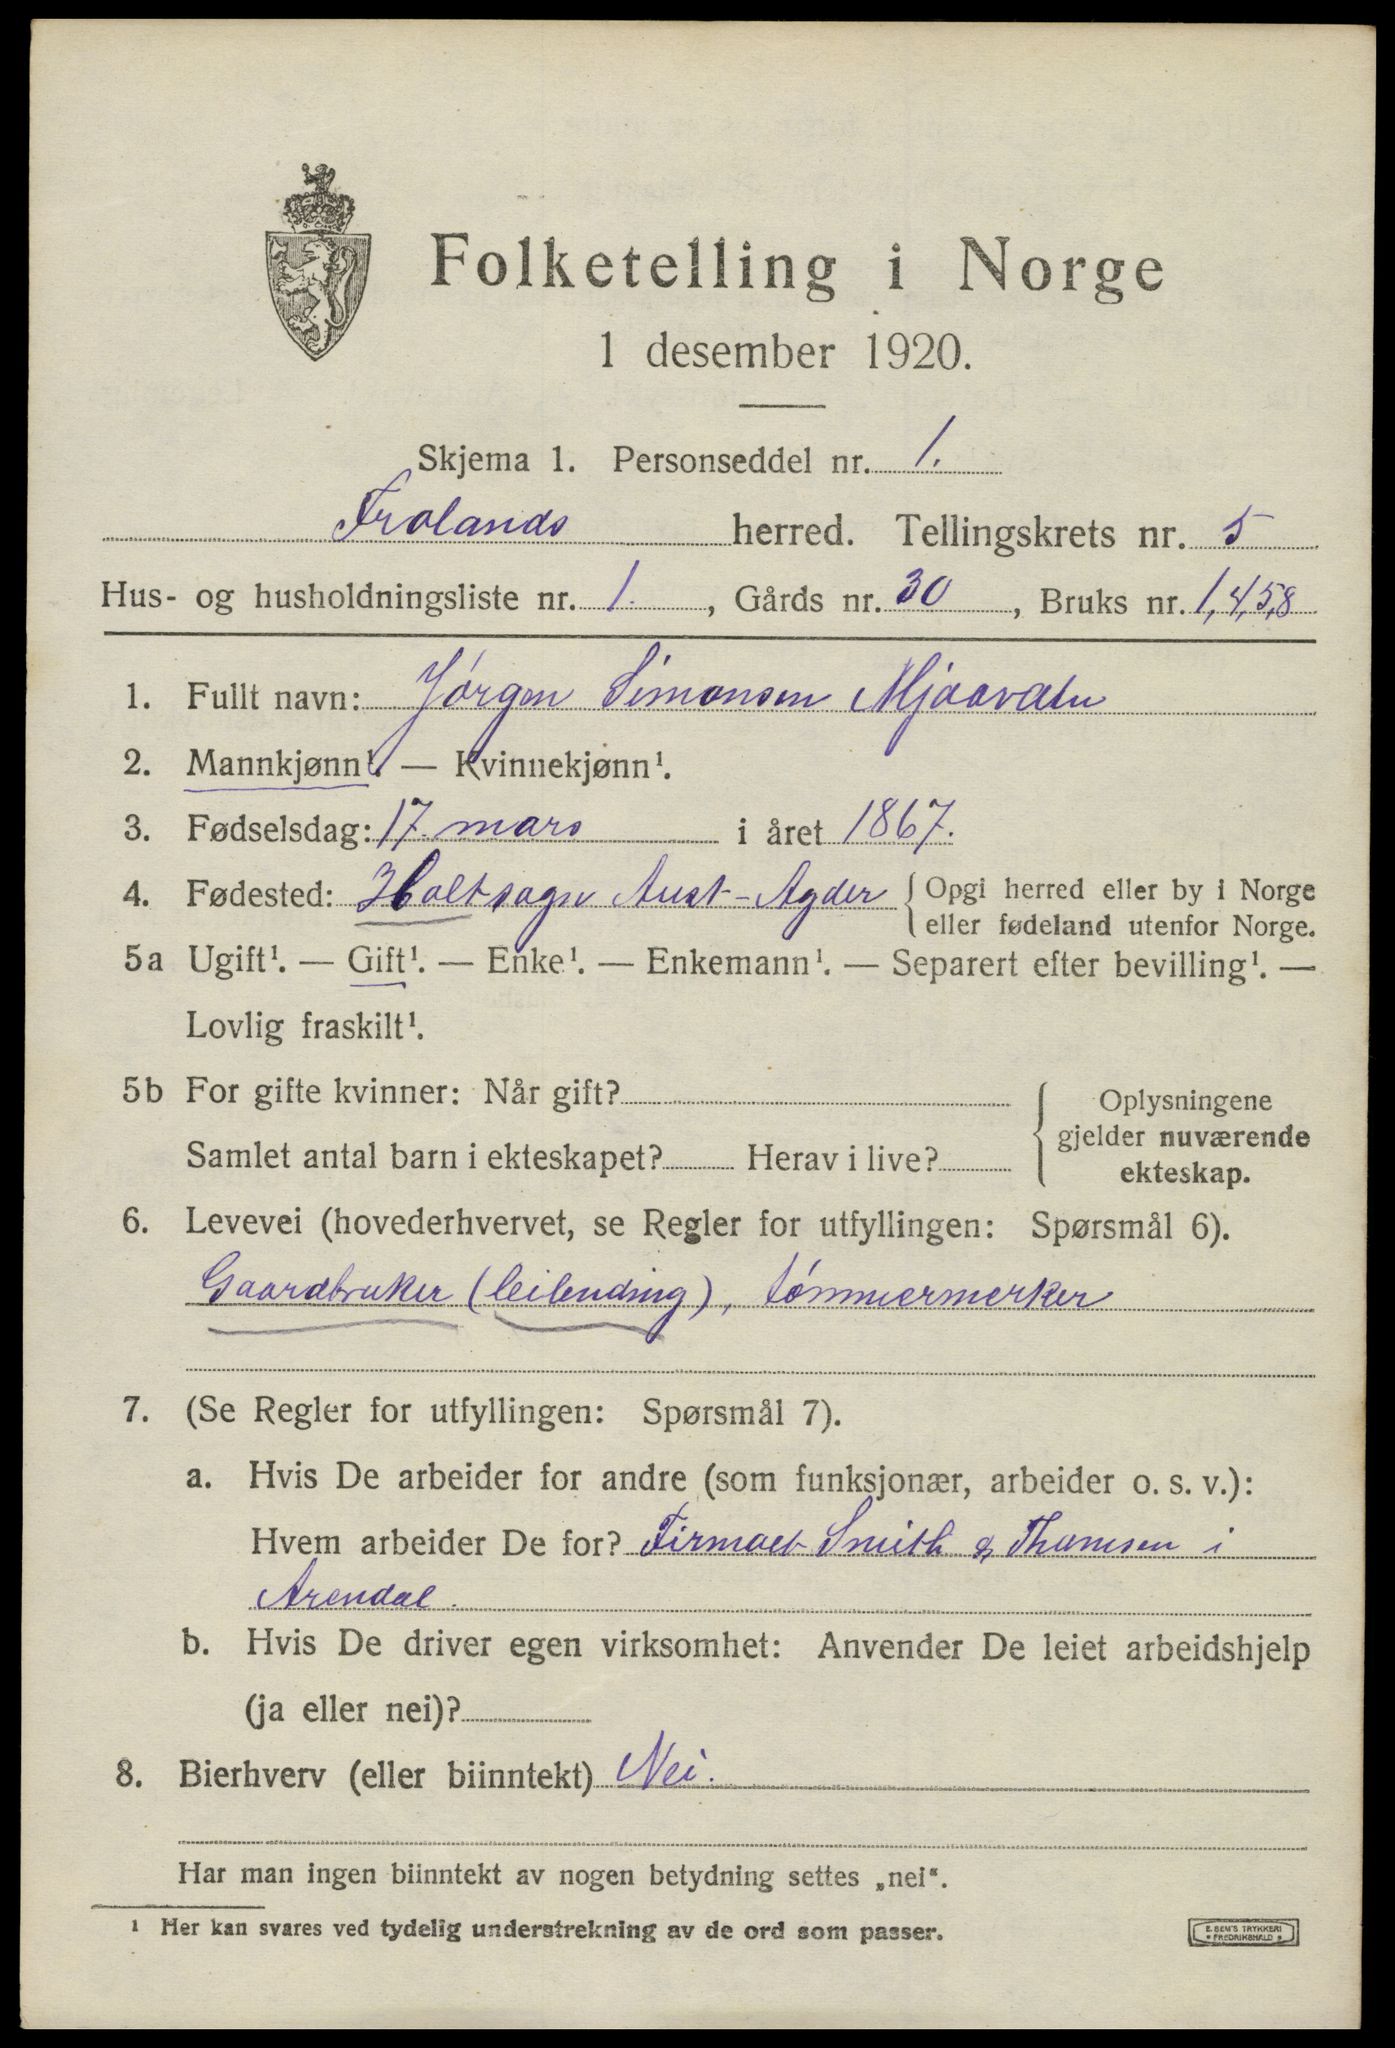 Folketelling i Norge
1 desember 1920.
Skjema 1. Personseddel nr. 1.
Frolands herred. Tellingskrets nr. 5
Hus- og husholdningsliste nr. 1. , Gårds nr. 30 , Bruks nr. 1,4,5,8
1. Fullt navn: Jórgen Simonsen Mjaavatn
2. Mannkjønn¹. — Kvinnekjønn¹.
3. Fødselsdag: 17. mars i året 1867.
4. Fødested: Holtsogn Aust-Agder Opgi herred eller by i Norge
eller fødeland utenfor Norge.
5a Ugift¹. — Gift¹. — Enke¹. — Enkemann¹. — Separert efter bevilling¹. —
Lovlig fraskilt¹.
5b For gifte kvinner: Når gift? Oplysningene
gjelder nuværende
Samlet antal barn i ekteskapet? Herav i live? ekteskap.
6. Levevei (hovederhvervet, se Regler for utfyllingen: Spørsmål 6).
Gaardbruker (leilending), tómmermerker
7. (Se Regler for utfyllingen: Spørsmål 7).
a. Hvis De arbeider for andre (som funksjonær, arbeider o. s. v.):
Hvem arbeider De for? Firmaet Smith & Thomsen i
Arendal.
b. Hvis De driver egen virksomhet: Anvender De leiet arbeidshjelp
(ja eller nei)?
8. Bierhverv (eller biinntekt) Nei.
Har man ingen biinntekt av nogen betydning settes „nei“.
¹ Her kan svares ved tydelig understrekning av de ord som passer.
E. SEM'S TRYKKERI
• FREDRIKSHALD •